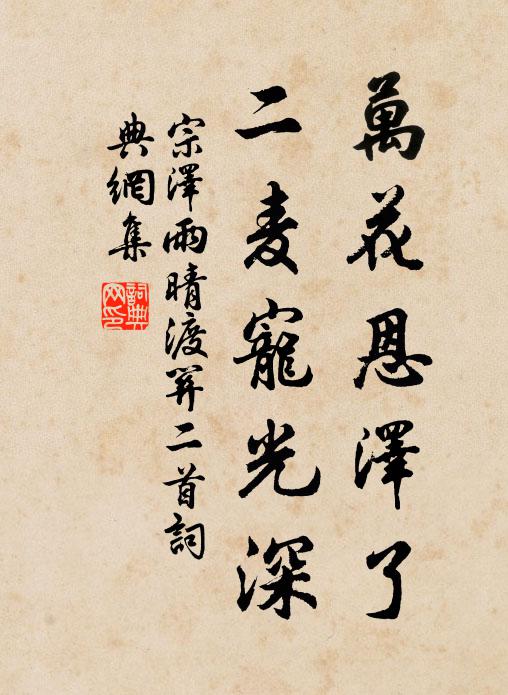 萬花恩澤了
二麦寵光深
宗澤雨晴渡関二首詞
典網集
詞典網印